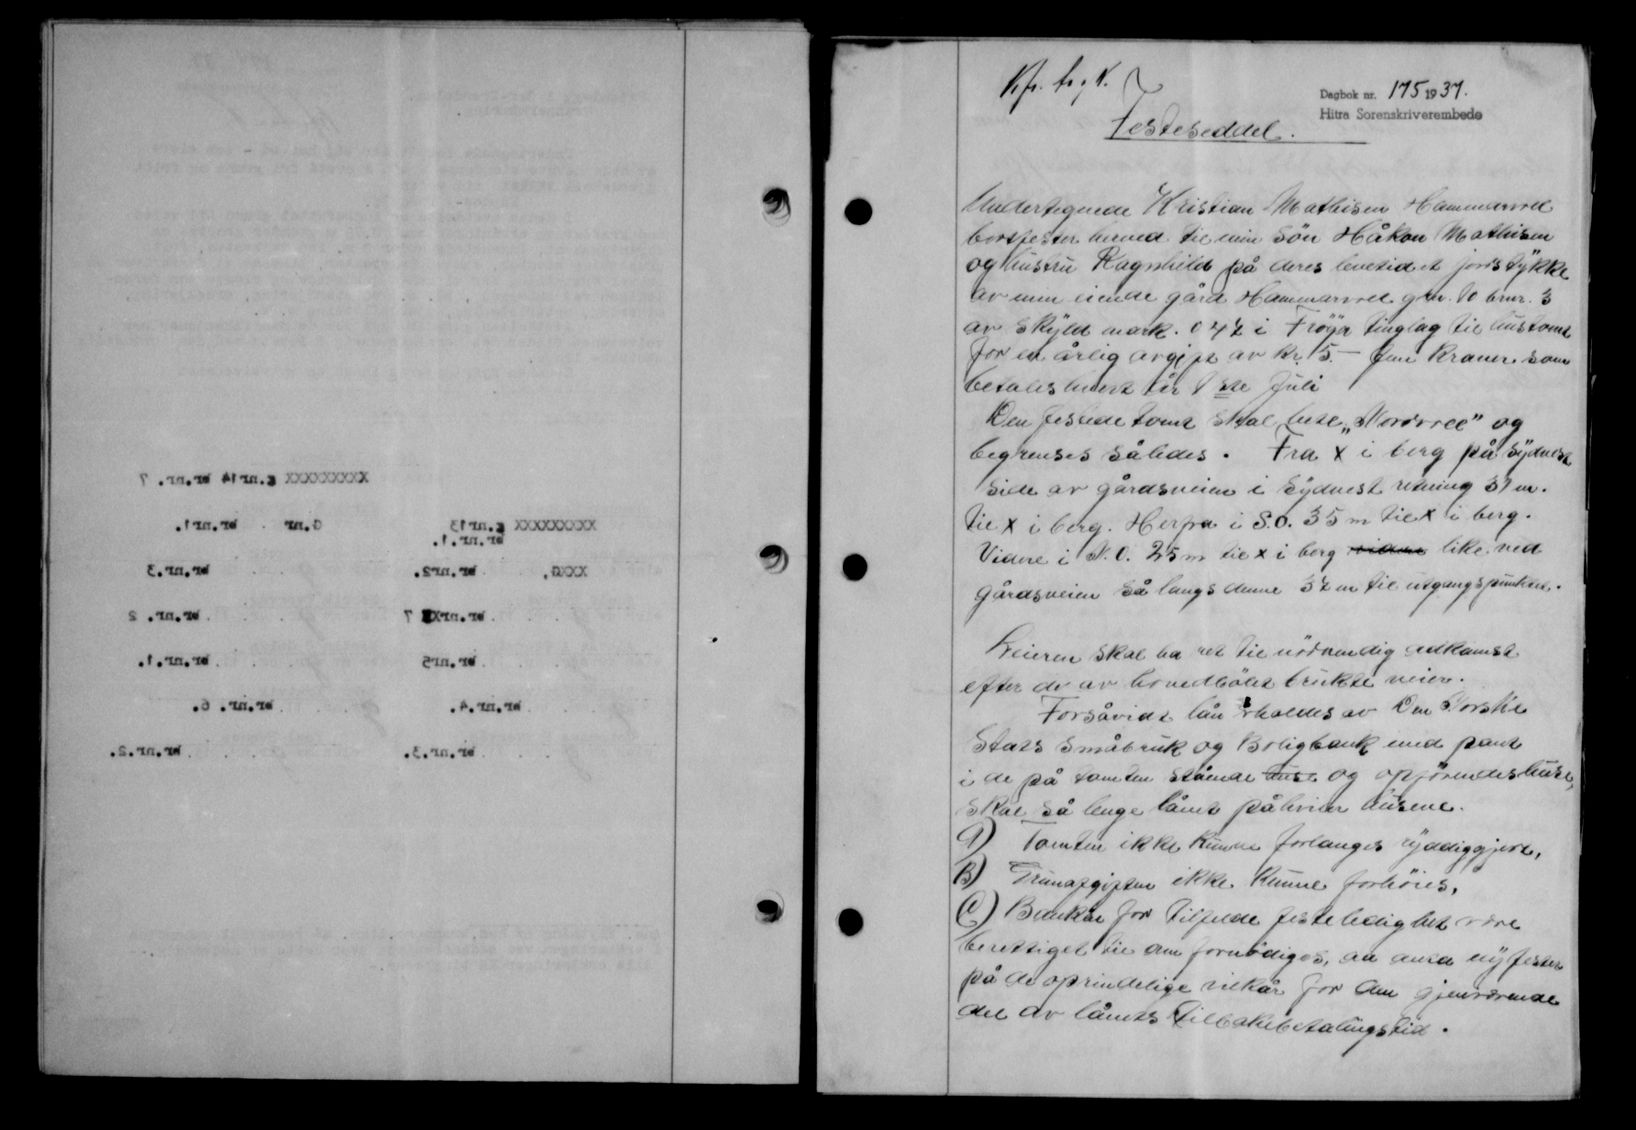 Dagbok nr. 175 1937.
Hitra Sorenskriverembede
Festeseddel.
Undertegnede Kristian Mathisen Hammarvel
bortfester herved til min sön Håkon Mathisen
og hustru Ragnhild på deres levetid et jordstykke
av min eiende gård Hammarvel gnr. 10 brnr. 3
av skyld mark. 0 42 i Fröya tinglag til hustomt
for en årlig avgift av kr. 5.- fem kroner som
betales hvert år 1ste Juli
Den festede tomt skal hete "Nordvel" og
begrenses således. Fra x i berg på sydvest
side av gårdsveien i sydvest retning 37 m.
til x i berg. Herfra i S.O. 35 m til x i berg.
Videre i N.O. 25 m til x i berg videre like ved
gårdsveien så langs denne 32 m til utgangspunktet.
Leieren skal ha ret til nödvendig adkomst
efter de av hovedbölet brukte veier.
Forsåvidt lån holdes av Den Norske
Stats Småbruk og Boligbank med pant
i de på tomten stående hus og opförendes huse,
skal så lenge lånet påhviler husene.
A) Tomten ikke kunne forlanges ryddiggjort,
B) Grunnavgiften ikke kunne forhöies,
C) Banken for tilfelde festeledighet være
berettiget til om fornödiges, aa ansa ny fester
på de oprindelige vilkår for den gjenværende
del av lånets tilbakebetalingstid.
XXXXXXXXX g.nr14 br.nr. 7
XXXXXXXXX g.nr13 G.nr br.nr1.
br.nr.1.
XXXG, br.nr2. br.nr.3
br.nrX 7 br.nr. 2
br.nr5 br.nr.1.
br.nr.4. br.nr. 6.
br.nr.3. br.nr.2.